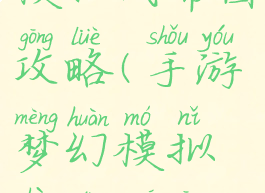 gōng lüè shǒu yóu
攻略(手游
mèng huàn mó nǐ
梦幻模拟